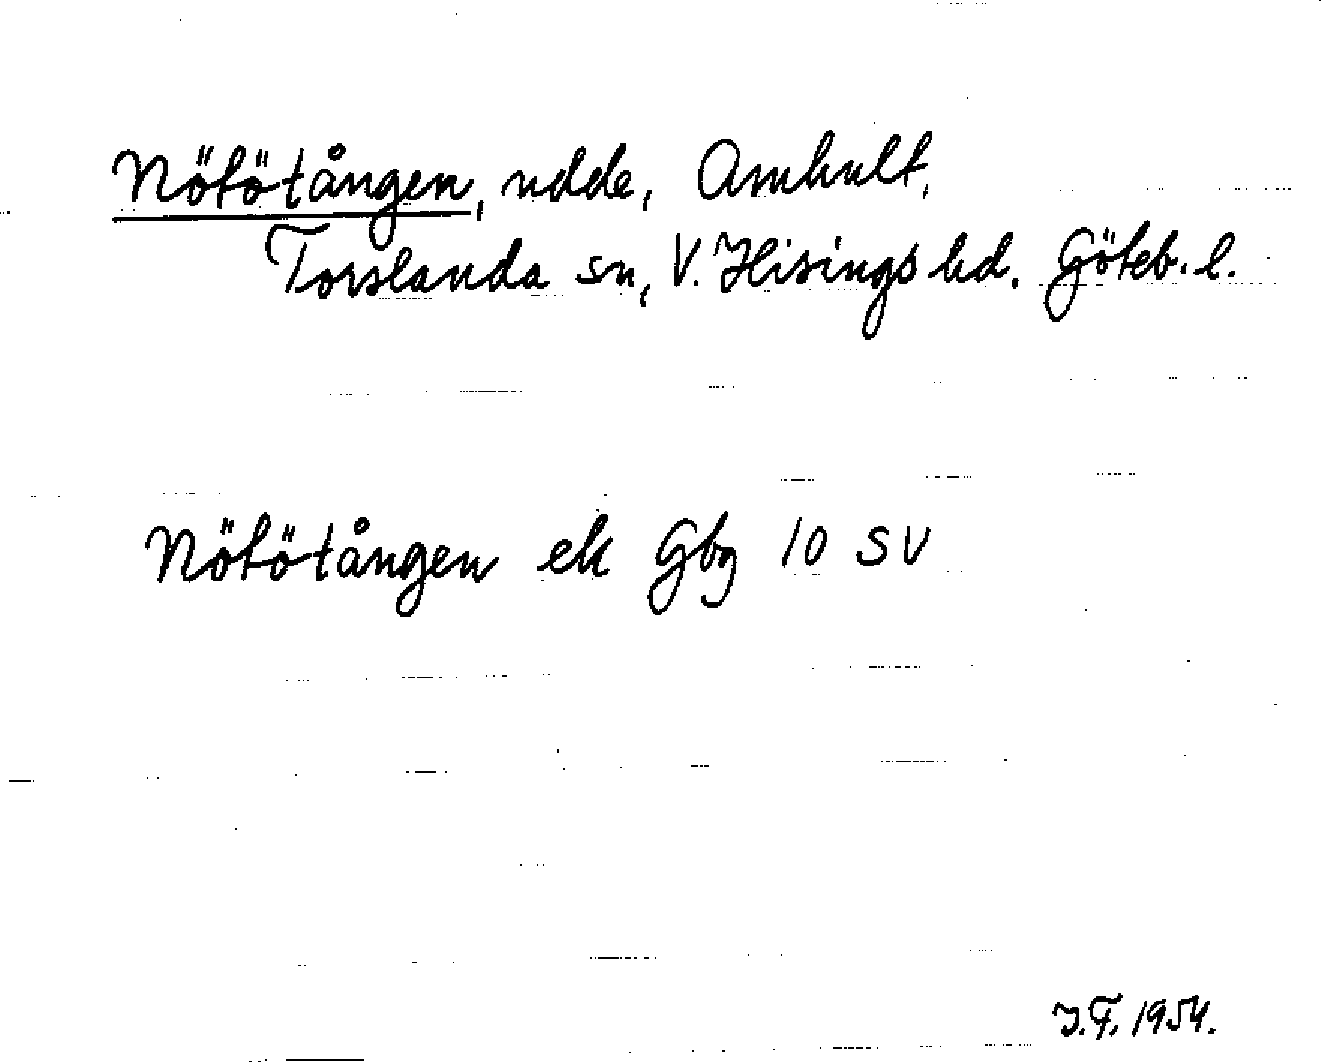 Nötötången, udde, Amhult,
Torslanda sn, V. Hisings hd. Göteb. l.
Nötötången ek Gbg 10 SV
I.F. 1954.